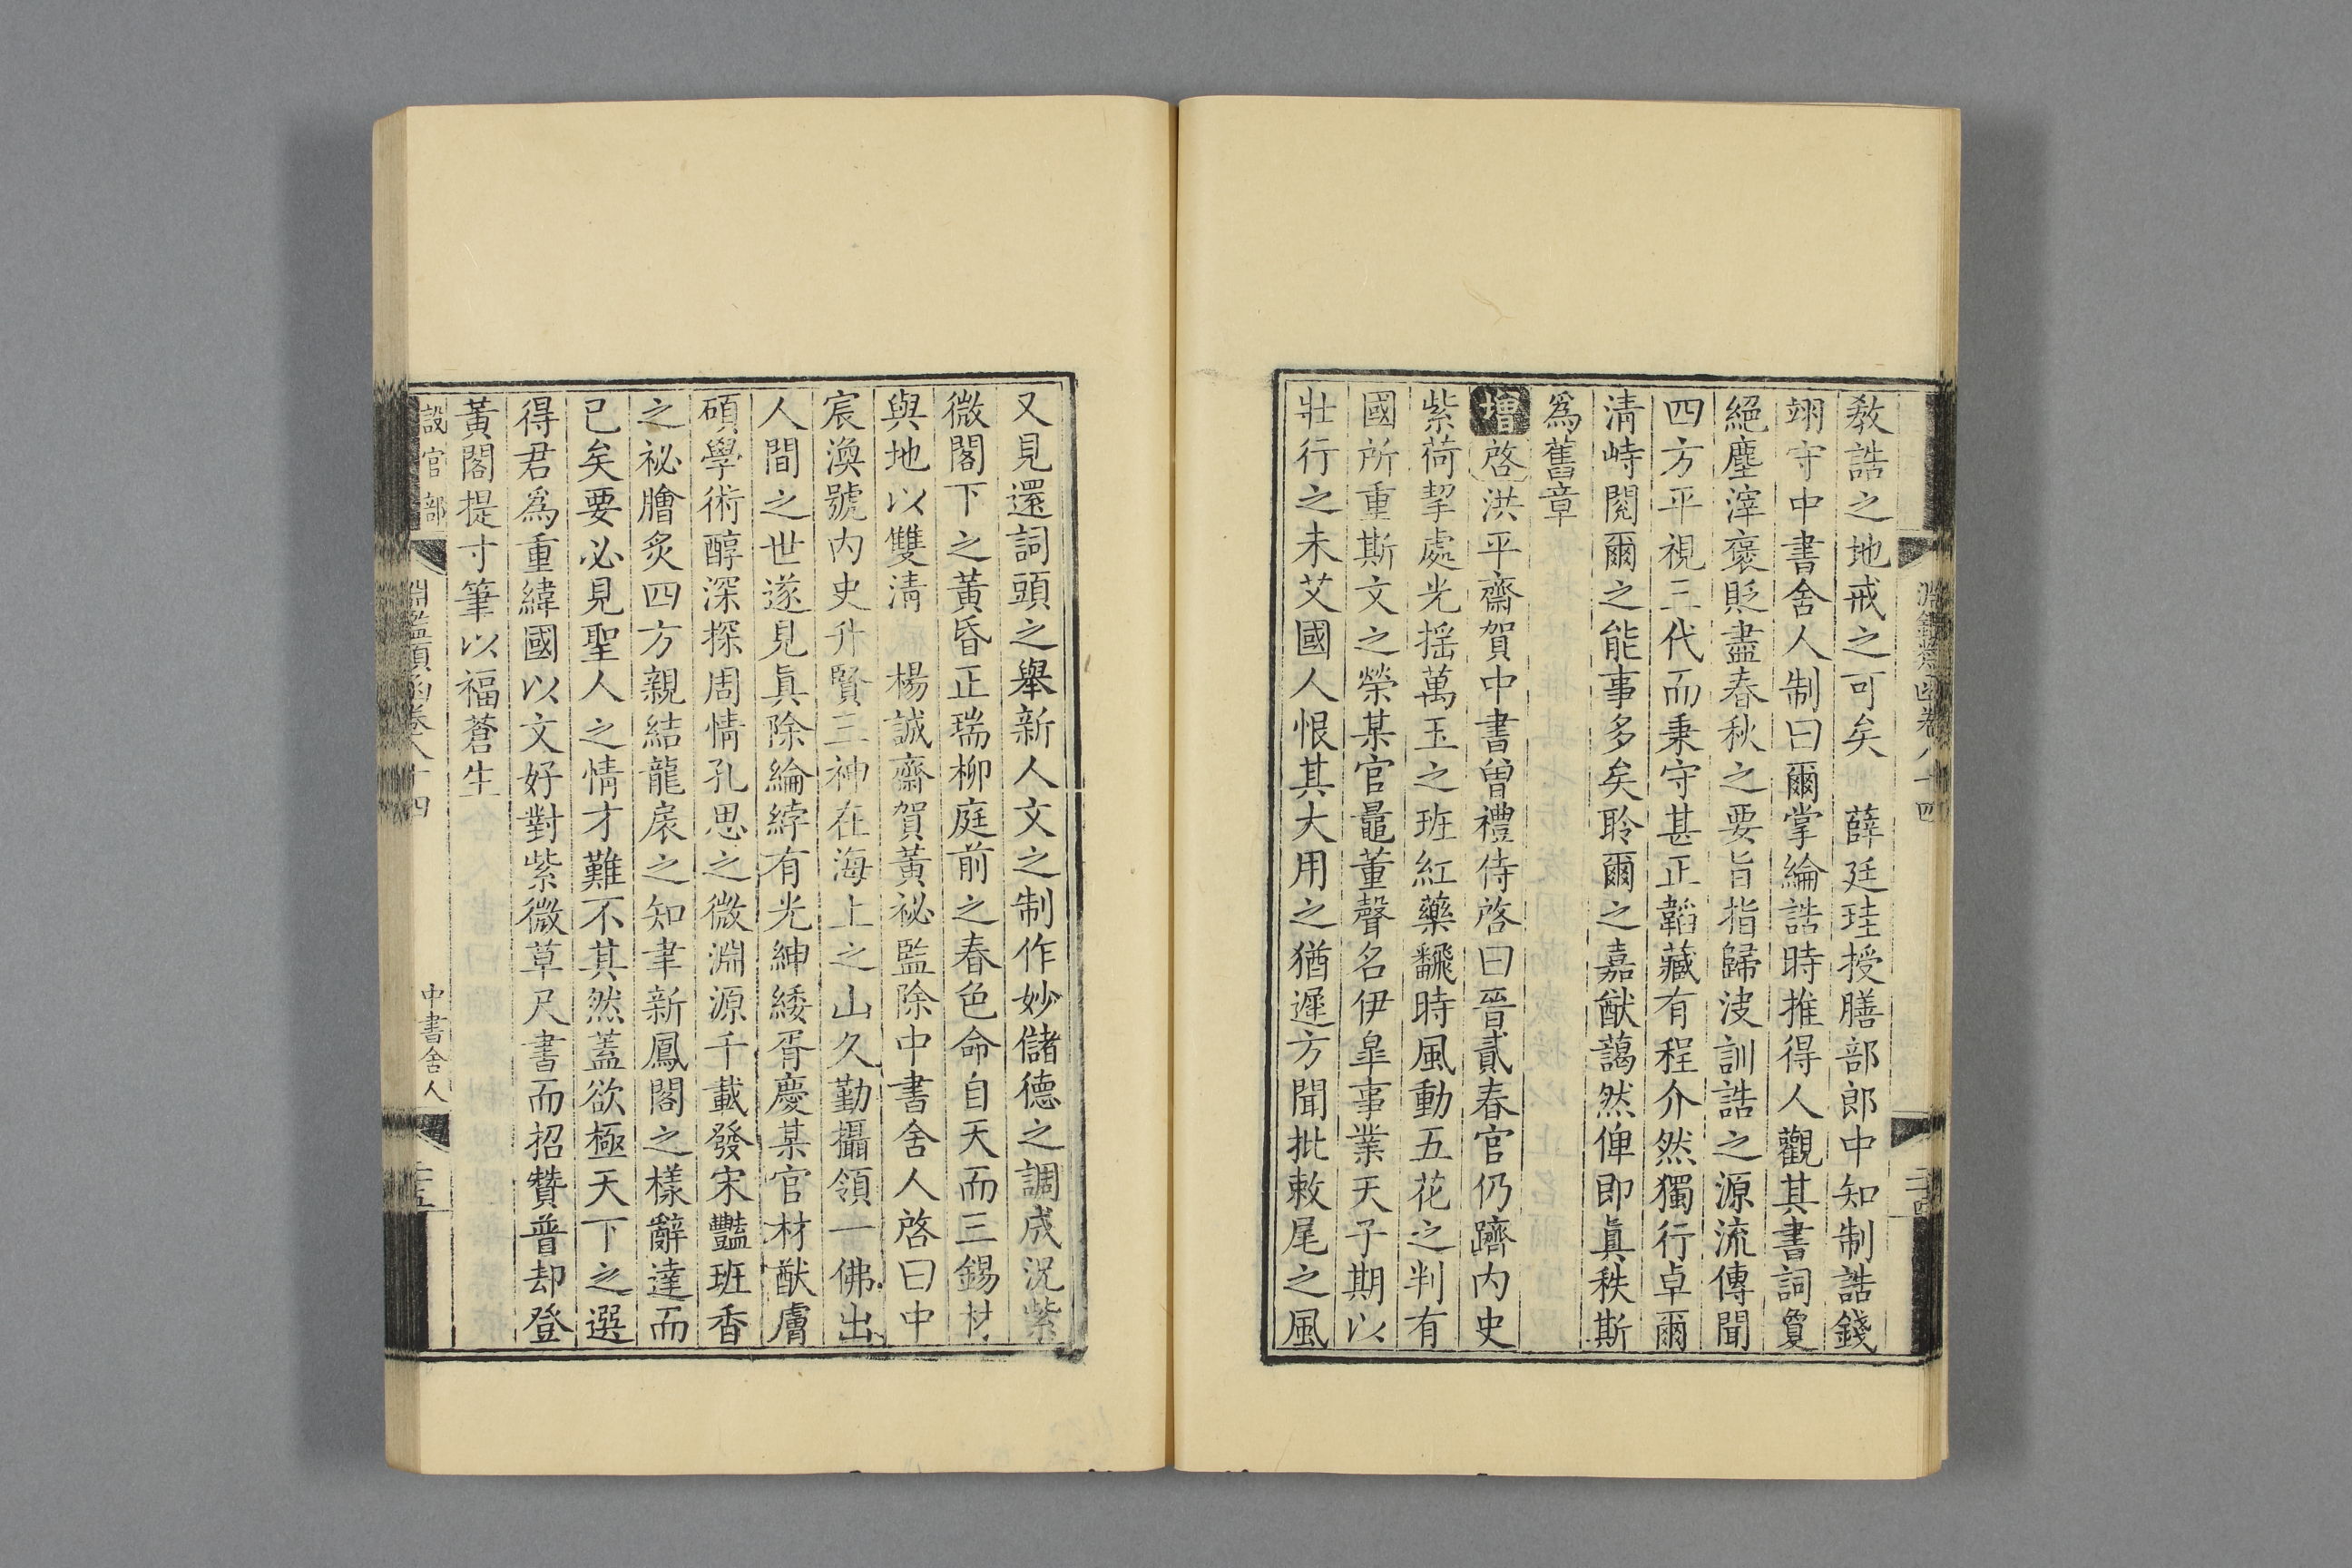 教誥之地戒之可矣　薛廷珪授膳部郎中知制誥錢
翊守中書舍人制曰爾掌綸誥時推得人觀其書詞夐
絕塵滓褒貶盡春秋之要旨指歸浸訓誥之源流傳聞
四方平視三代而秉守甚正韜藏有程介然獨行卓爾
淸峙閱爾之能事多矣聆爾之嘉猷藹然俾卽眞秩斯
爲舊章
增啓洪平齋賀中書曾禮侍啓曰晉貳春官仍躋內史
紫荷挈處光搖萬玉之班紅藥飜時風動五花之判有
國所重斯文之榮某官鼂董聲名伊皐事業天子期以
壯行之未艾國人恨其大用之猶遲方聞批敕尾之風
又見還詞頭之舉新人文之制作妙儲德之調成況紫
微閣下之黃昏正瑞柳庭前之春色命自天而三錫材
與地以雙淸　楊誠齋賀黃祕監除中書舍人啓曰中
宸渙號內史升賢三神在海上之山久勤攝領一佛出
人間之世遂見眞除綸綍有光紳緌胥慶某官材猷膚
碩學術醇深探周情孔思之微淵源千載發宋豔班香
之祕膾炙四方親結龍扆之知聿新鳳閣之樣辭達而
已矣要必見聖人之情才難不其然蓋欲極天下之選
得君爲重緯國以文好對紫微草尺書而招贊普却登
黃閣提寸筆以福蒼生
設官部
淵鑑類函卷八十四
中書舍人
二十五